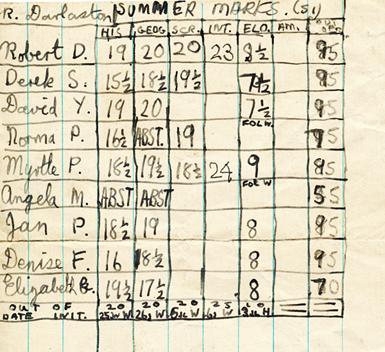 R. Darlaston SUMMER MARKS. (S1)
HIS GEOG SCR. INT. ELO. AM.
Robert D. 19 20 20 23 8½ 95
Derek S. 15½ 18½ 19½ 7½ 95
David Y. 19 20 7½ 95
FOL W.
Norma P. 16½ ABST. 19 95
Myrtle P. 18½ 19½ 18½ 24 9 95
FOL W
Angela M. ABST ABST 55
Jan P. 18½ 19 8 95
Denise F. 16 18½ 8 95
Elizabeth 19½ 17½ 8 70
OUT OF 20 20 20 25 10
DATE INIT.